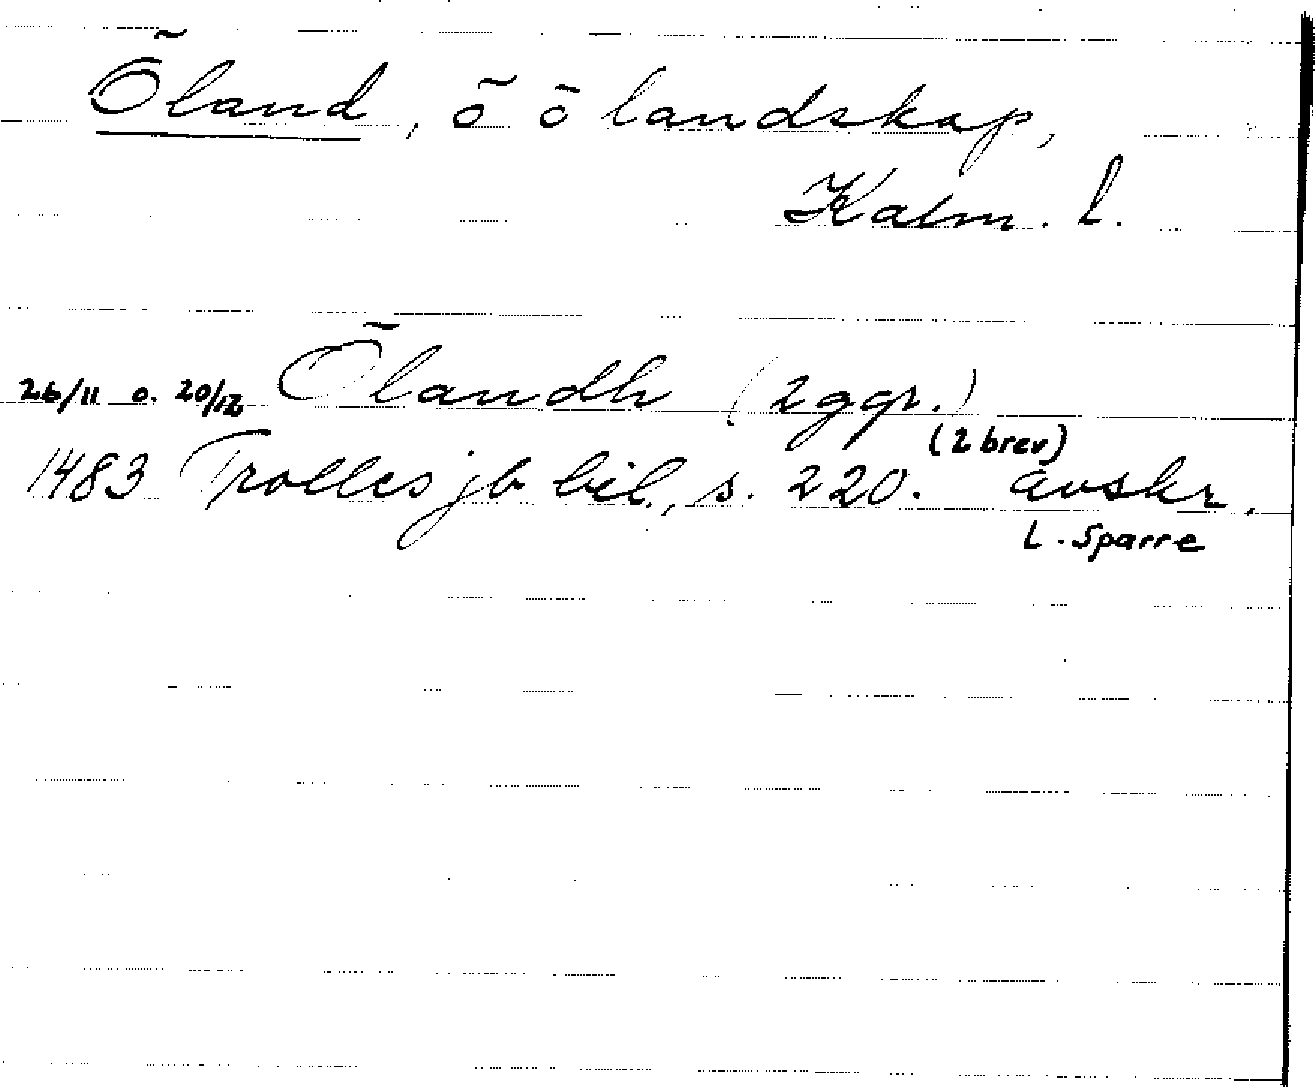 Öland, ö ö landskap,
Kalm. l.
26/11 o. 20/12 Ölandh (2 ggr.)
(2 brev)
1483 Trolles jb bil., s. 220. avskr.
L. Sparre